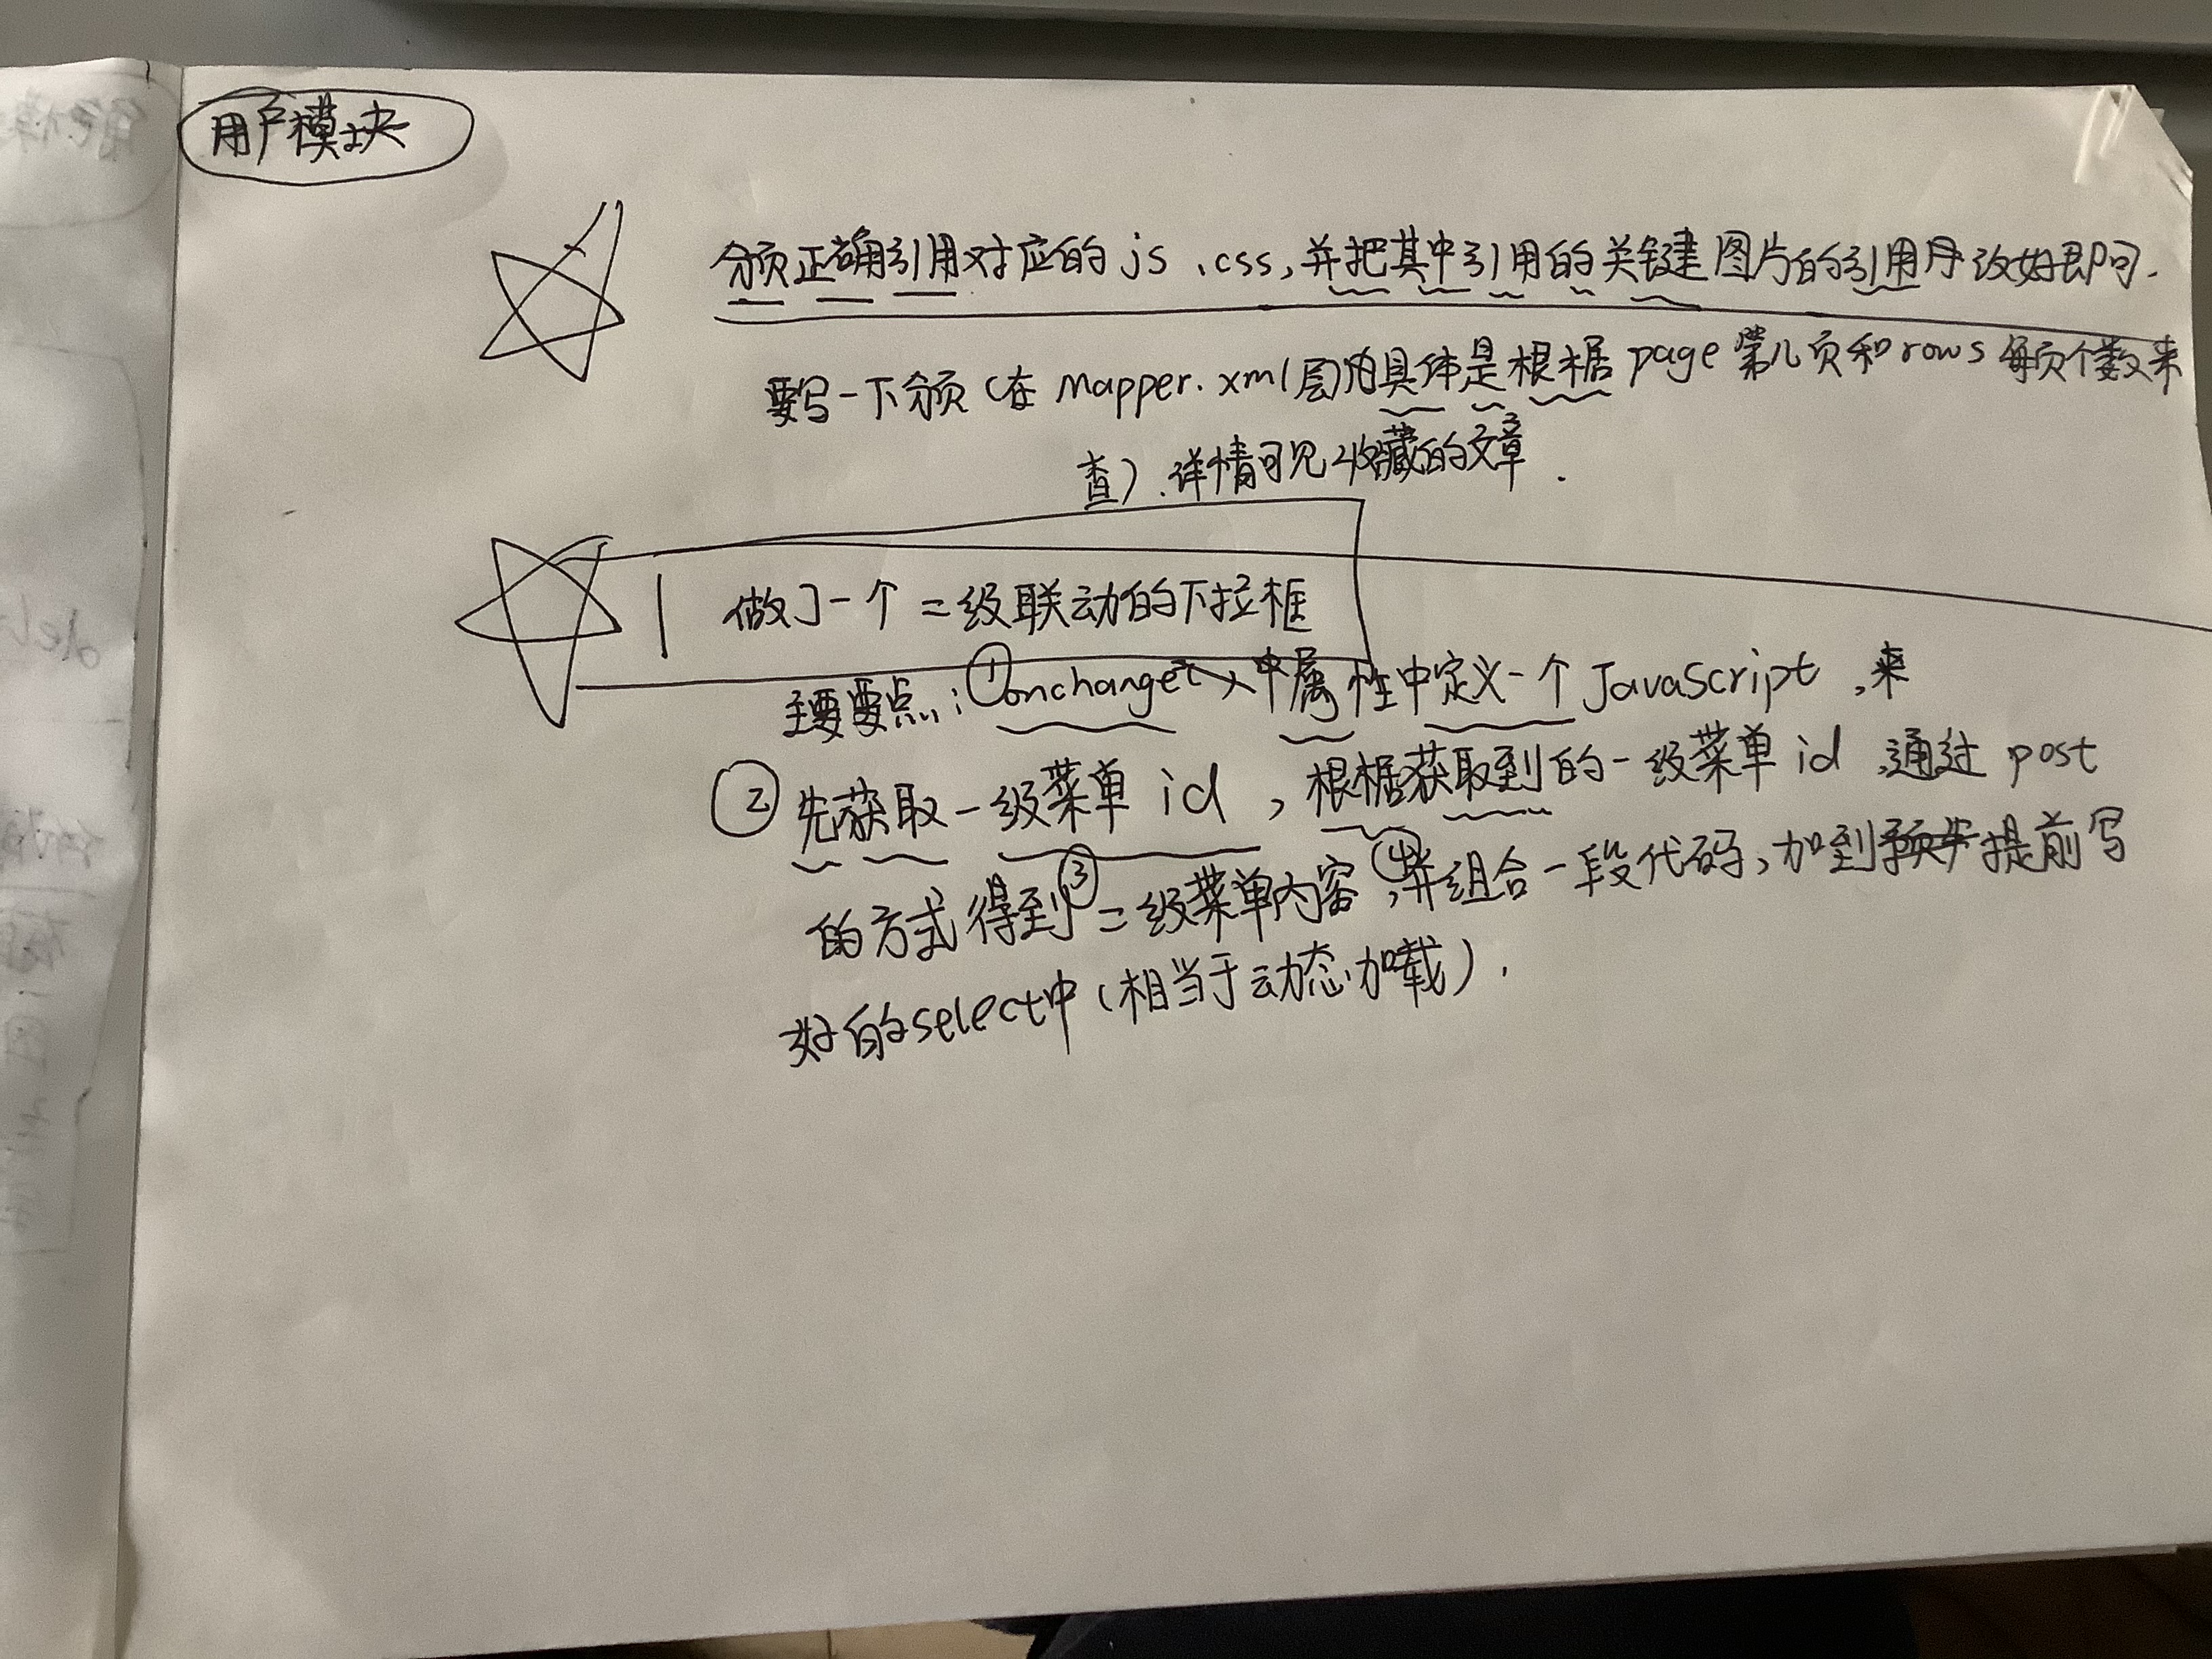 用户模块
分页正确引用对应的js.css,并把其中引用的关键图片的引用 改好即可.
要写一下分页(在mapper.xml层的具体是根据page第几页和rows每页个数来
查).详情可见收藏的文章.
做了一个二级联动的下拉框
主要要点:①onchange 属性中定义一个JavaScript,来
②先获取一级菜单id,根据获取到的一级菜单id,通过post
的方式得到③二级菜单内容,④并组合一段代码,加到提前写
好的select中(相当于动态加载).